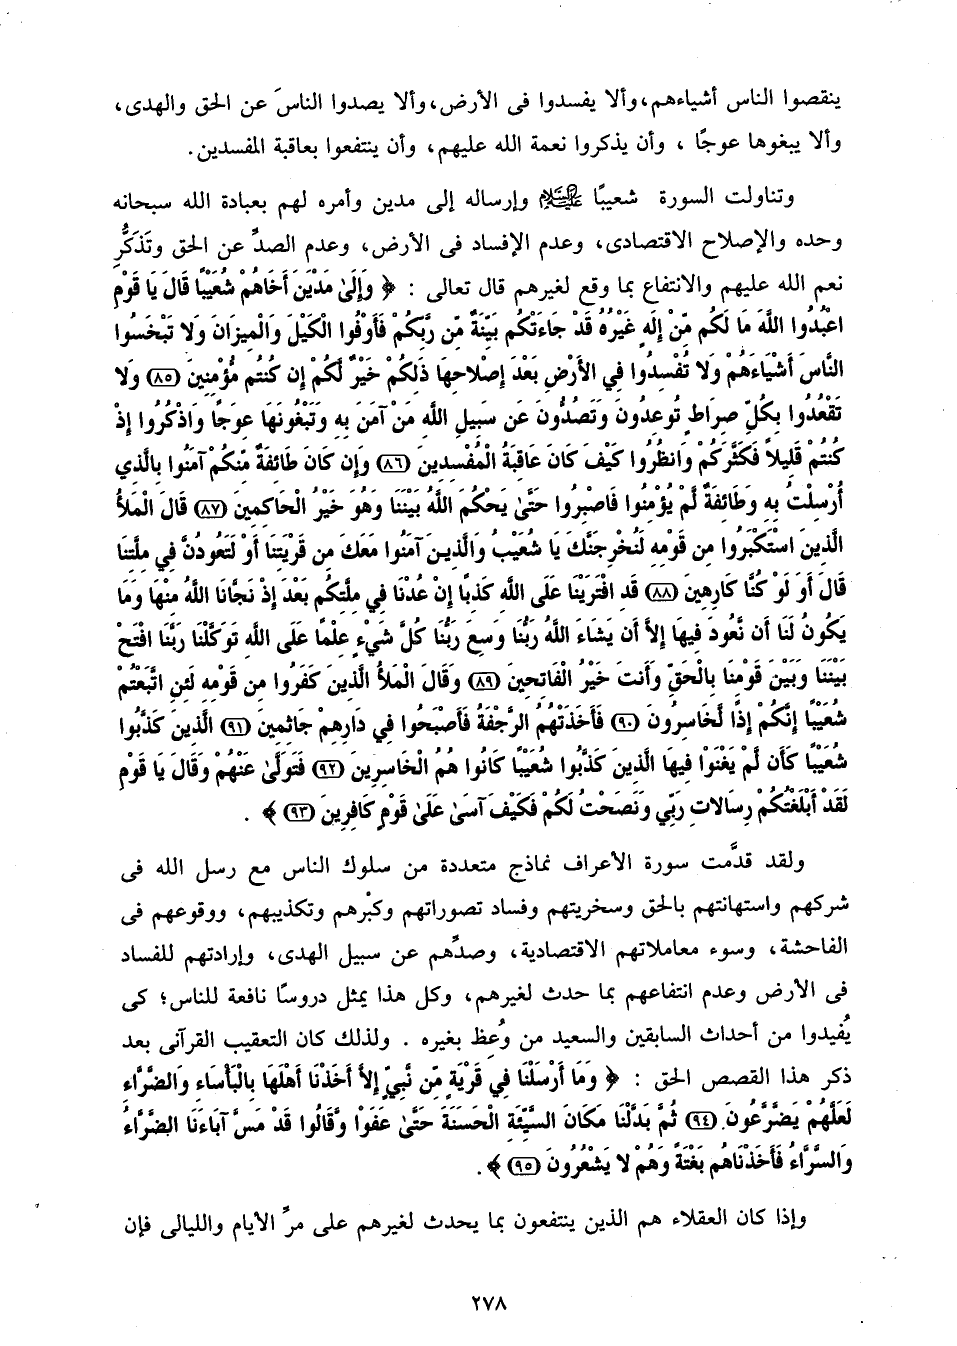 ينقصوا الناس أشياءهم، وألا يفسدوا فى الأرض، وألا يصدوا الناسَ عن الحق والهدى،
وألا يبغوها عوجًا ، وأن يذكروا نعمة الله عليهم، وأن ينتفعوا بعاقبة المفسدين.
وتناولت السورة شعيبًا عليه السلام وإرساله إلى مدين وأمره لهم بعبادة الله سبحانه
وحده والإصلاح الاقتصادى، وعدم الإفساد فى الأرض، وعدم الصدِّ عن الحق وتَذَكُّرِ
نعم الله عليهم والانتفاع بما وقع لغيرهم قال تعالى : ﴿ وَإِلَىٰ مَدْيَنَ أَخَاهُمْ شُعَيْبًا قَالَ يَا قَوْمِ
اعْبُدُوا اللَّهَ مَا لَكُم مِّنْ إِلَهٍ غَيْرُهُ قَدْ جَاءَتْكُم بَيِّنَةٌ مِّن رَّبِّكُمْ فَأَوْفُوا الْكَيْلَ وَالْمِيزَانَ وَلا تَبْخَسُوا
النَّاسَ أَشْيَاءَهُمْ وَلا تُفْسِدُوا فِي الأَرْضِ بَعْدَ إِصْلاحِهَا ذَلِكُمْ خَيْرٌ لَّكُمْ إِن كُنتُم مُّؤْمِنِينَ (٨٥) وَلا
تَقْعُدُوا بِكُلِّ صِرَاطٍ تُوعِدُونَ وَتَصُدُّونَ عَن سَبِيلِ اللَّهِ مَنْ آمَنَ بِهِ وَتَبْغُونَهَا عِوَجًا وَاذْكُرُوا إِذْ
كُنتُمْ قَلِيلاً فَكَثَّرَكُمْ وَانظُرُوا كَيْفَ كَانَ عَاقِبَةُ الْمُفْسِدِينَ (٨٦) وَإِن كَانَ طَائِفَةٌ مِّنكُمْ آمَنُوا بِالَّذِي
أُرْسِلْتُ بِهِ وَطَائِفَةٌ لَّمْ يُؤْمِنُوا فَاصْبِرُوا حَتَّىٰ يَحْكُمَ اللَّهُ بَيْنَنَا وَهُوَ خَيْرُ الْحَاكِمِينَ (٨٧) قَالَ الْمَلأُ
الَّذِينَ اسْتَكْبَرُوا مِن قَوْمِهِ لَنُخْرِجَنَّكَ يَا شُعَيْبُ وَالَّذِينَ آمَنُوا مَعَكَ مِن قَرْيَتِنَا أَوْ لَتَعُودُنَّ فِي مِلَّتِنَا
قَالَ أَوَ لَوْ كُنَّا كَارِهِينَ (٨٨) قَدِ افْتَرَيْنَا عَلَى اللَّهِ كَذِبًا إِنْ عُدْنَا فِي مِلَّتِكُم بَعْدَ إِذْ نَجَّانَا اللَّهُ مِنْهَا وَمَا
يَكُونُ لَنَا أَن نَّعُودَ فِيهَا إِلاَّ أَن يَشَاءَ اللَّهُ رَبُّنَا وَسِعَ رَبُّنَا كُلَّ شَيْءٍ عِلْمًا عَلَى اللَّهِ تَوَكَّلْنَا رَبَّنَا افْتَحْ
بَيْنَنَا وَبَيْنَ قَوْمِنَا بِالْحَقِّ وَأَنتَ خَيْرُ الْفَاتِحِينَ (٨٩) وَقَالَ الْمَلأُ الَّذِينَ كَفَرُوا مِن قَوْمِهِ لَئِنِ اتَّبَعْتُمْ
شُعَيْبًا إِنَّكُمْ إِذًا لَّخَاسِرُونَ (٩٠) فَأَخَذَتْهُمُ الرَّجْفَةُ فَأَصْبَحُوا فِي دَارِهِمْ جَاثِمِينَ (٩١) الَّذِينَ كَذَّبُوا
شُعَيْبًا كَأَن لَّمْ يَغْنَوْا فِيهَا الَّذِينَ كَذَّبُوا شُعَيْبًا كَانُوا هُمُ الْخَاسِرِينَ (٩٢) فَتَوَلَّىٰ عَنْهُمْ وَقَالَ يَا قَوْمِ
لَقَدْ أَبْلَغْتُكُمْ رِسَالاتِ رَبِّي وَنَصَحْتُ لَكُمْ فَكَيْفَ آسَىٰ عَلَىٰ قَوْمٍ كَافِرِينَ (٩٣) ﴾ .
ولقد قدَّمت سورة الأعراف نماذج متعددة من سلوك الناس مع رسل الله فى
شركهم واستهانتهم بالحق وسخريتهم وفساد تصوراتهم وكبْرهم وتكذيبهم، ووقوعهم فى
الفاحشة، وسوء معاملاتهم الاقتصادية، وصدِّهم عن سبيل الهدى، وإرادتهم للفساد
فى الأرض وعدم انتفاعهم بما حدث لغيرهم، وكل هذا يمثل دروسًا نافعة للناس؛ كى
يُفيدوا من أحداث السابقين والسعيد من وُعظ بغيره . ولذلك كان التعقيب القرآنى بعد
ذكر هذا القصص الحق : ﴿ وَمَا أَرْسَلْنَا فِي قَرْيَةٍ مِّن نَّبِيٍّ إِلاَّ أَخَذْنَا أَهْلَهَا بِالْبَأْسَاءِ وَالضَّرَّاءِ
لَعَلَّهُمْ يَضَّرَّعُونَ (٩٤) ثُمَّ بَدَّلْنَا مَكَانَ السَّيِّئَةِ الْحَسَنَةَ حَتَّىٰ عَفَوْا وَّقَالُوا قَدْ مَسَّ آبَاءَنَا الضَّرَّاءُ
وَالسَّرَّاءُ فَأَخَذْنَاهُم بَغْتَةً وَهُمْ لا يَشْعُرُونَ (٩٥) ﴾ .
وإذا كان العقلاء هم الذين ينتفعون بما يحدث لغيرهم على مرِّ الأيام والليالى فإن
٢٧٨